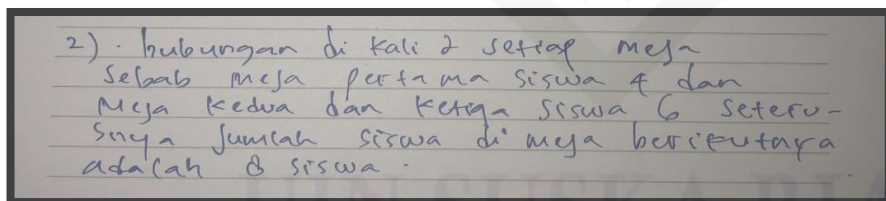 2). hubungan di kali 2 setiap meja
sebab meja pertama siswa 4 dan
meja kedua dan ketiga siswa 6 seteru-
snya jumlah siswa di meja berikutnya
adalah 8 siswa.